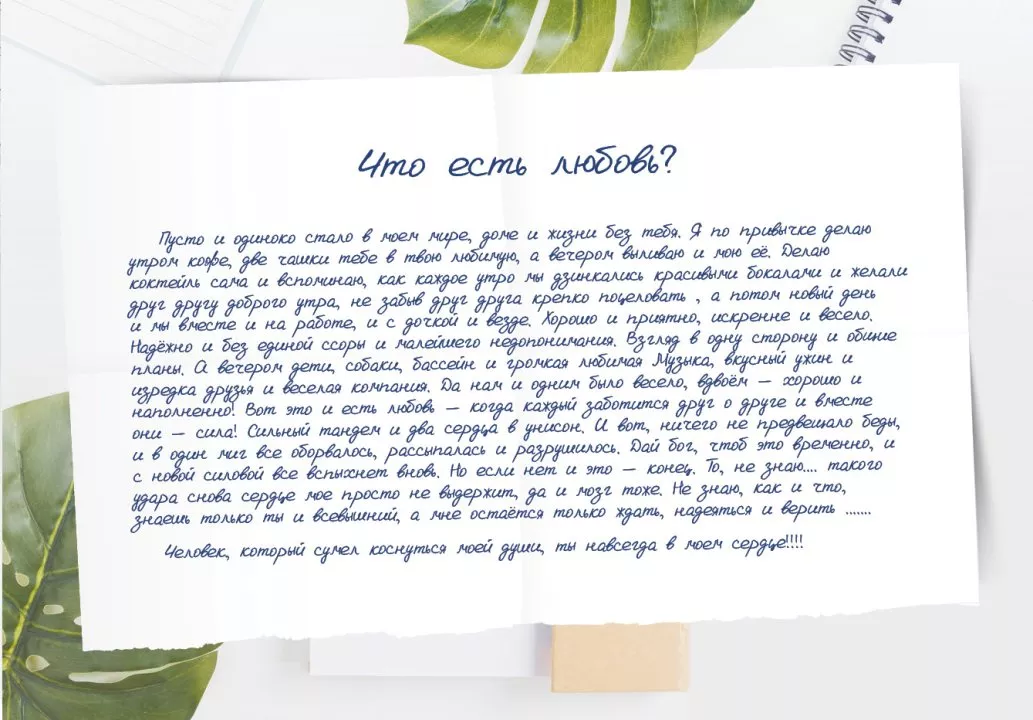 Что есть любовь?
Пусто и одиноко стало в моем мире, доме и жизни без тебя. Я по привычке делаю
утром кофе, две чашки тебе в твою любимую, а вечером выливаю и мою её. Делаю
коктейль сама и вспоминаю, как каждое утро мы дзинкались красивыми бокалами и желали
друг другу доброго утра, не забыв друг друга крепко поцеловать , а потом новый день
и мы вместе и на работе, и с дочкой и везде. Хорошо и приятно, искренне и весело.
Надёжно и без единой ссоры и малейшего недопонимания. Взгляд в одну сторону и общие
планы. А вечером дети, собаки, бассейн и громкая любимая Музыка, вкусный ужин и
изредка друзья и веселая компания. Да нам и одним было весело, вдвоём – хорошо и
наполненно! Вот это и есть любовь – когда каждый заботится друг о друге и вместе
они – сила! Сильный тандем и два сердца в унисон. И вот, ничего не предвещало беды,
и в один миг все оборвалось, рассыпалась и разрушилось. Дай бог, чтоб это временно, и
с новой силовой все вспыхнет вновь. Но если нет и это – конец. То, не знаю.... такого
удара снова сердце мое просто не выдержит, да и мозг тоже. Не знаю, как и что,
знаешь только ты и всевышний, а мне остаётся только ждать, надеяться и верить .......
Человек, который сумел коснуться моей души, ты навсегда в моем сердце!!!!